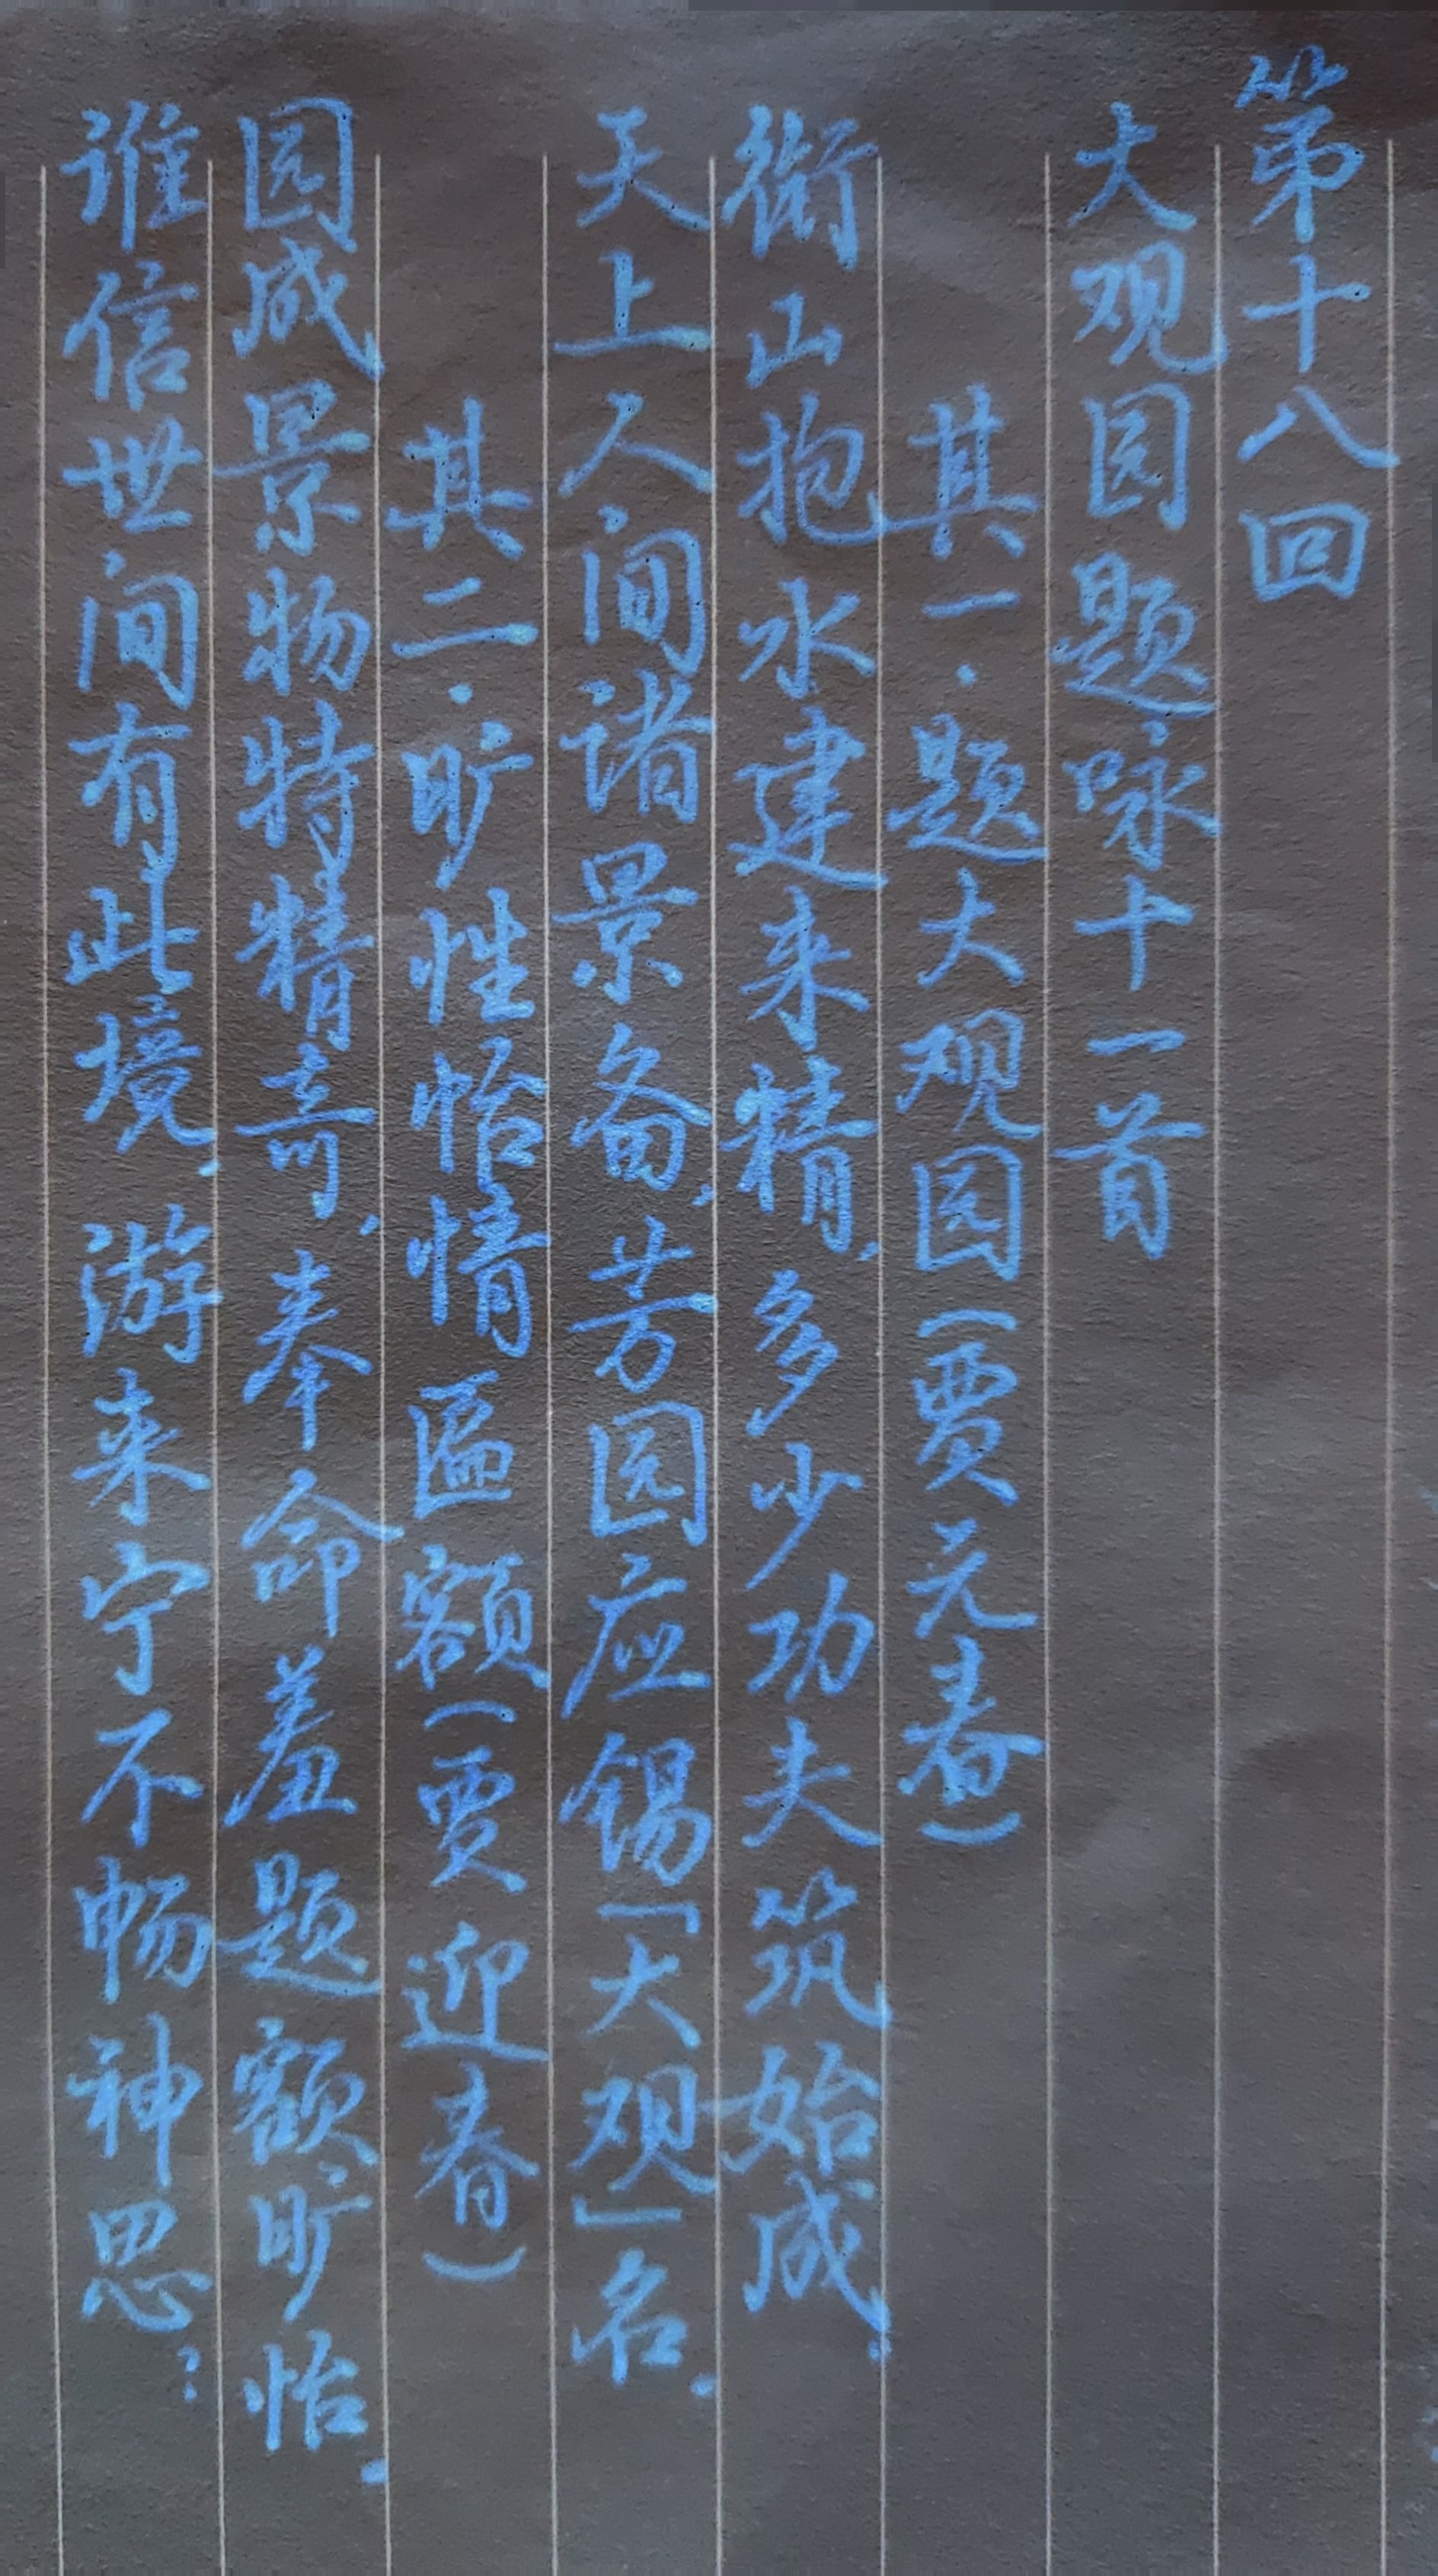 第十八回
大观园题咏十一首
其一·题大观园(贾元春)
衔山抱水建来精,多少功夫筑始成;
天上人间诸景备,芳园应锡「大观」名。
其二·旷性怡情匾额(贾迎春)
园成景物特精奇,奉命羞题额旷怡。
谁信世间有此境,游来宁不畅神思?